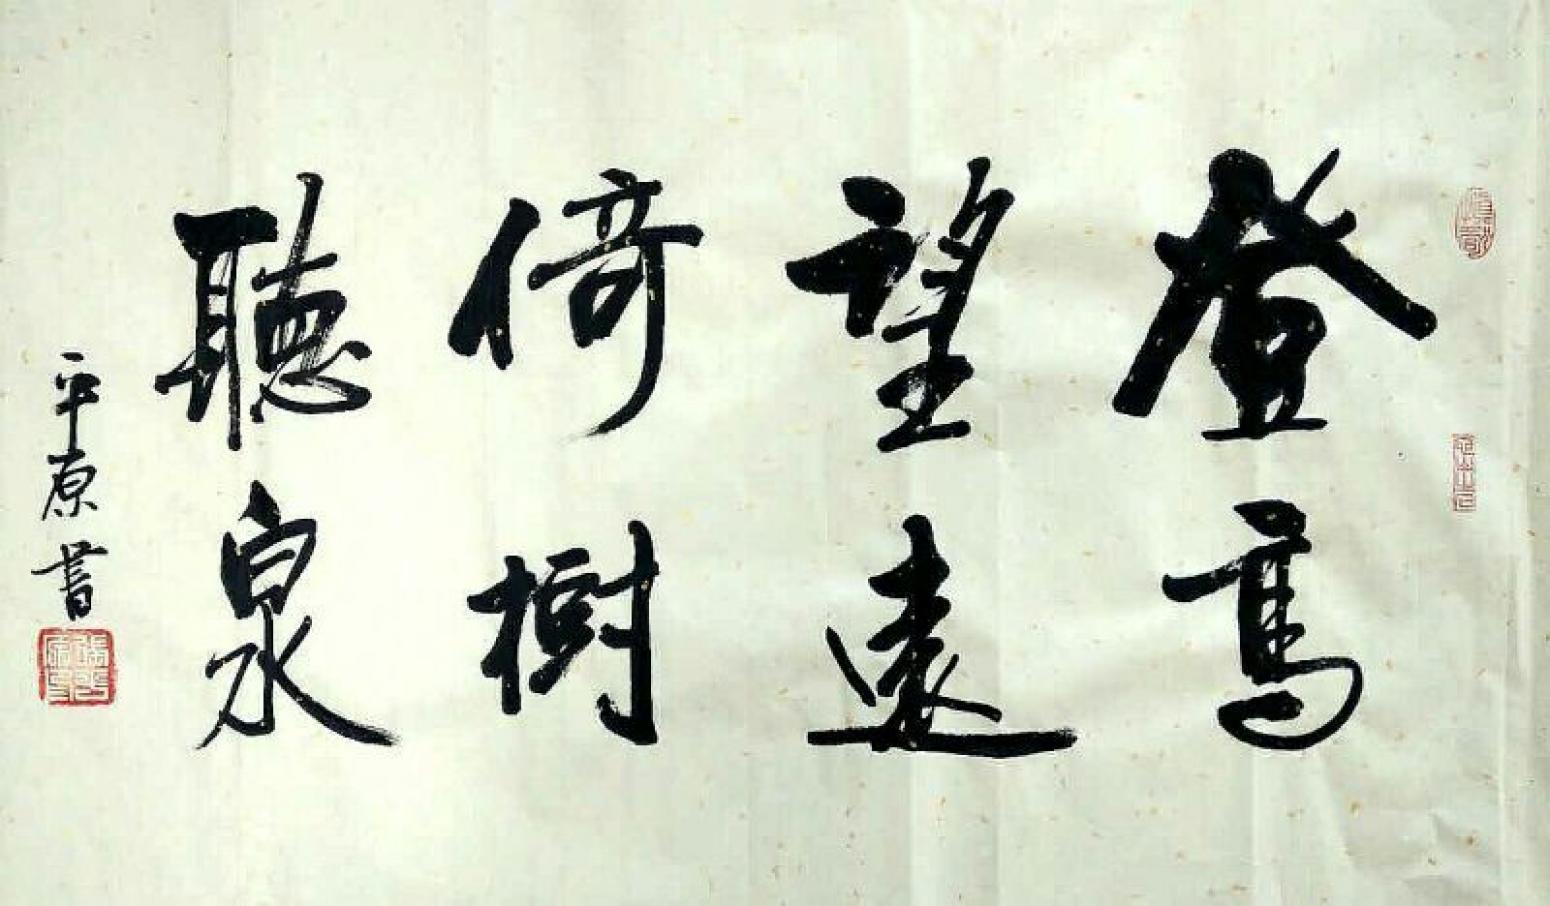 登高
望遠
倚樹
聽泉
平原書